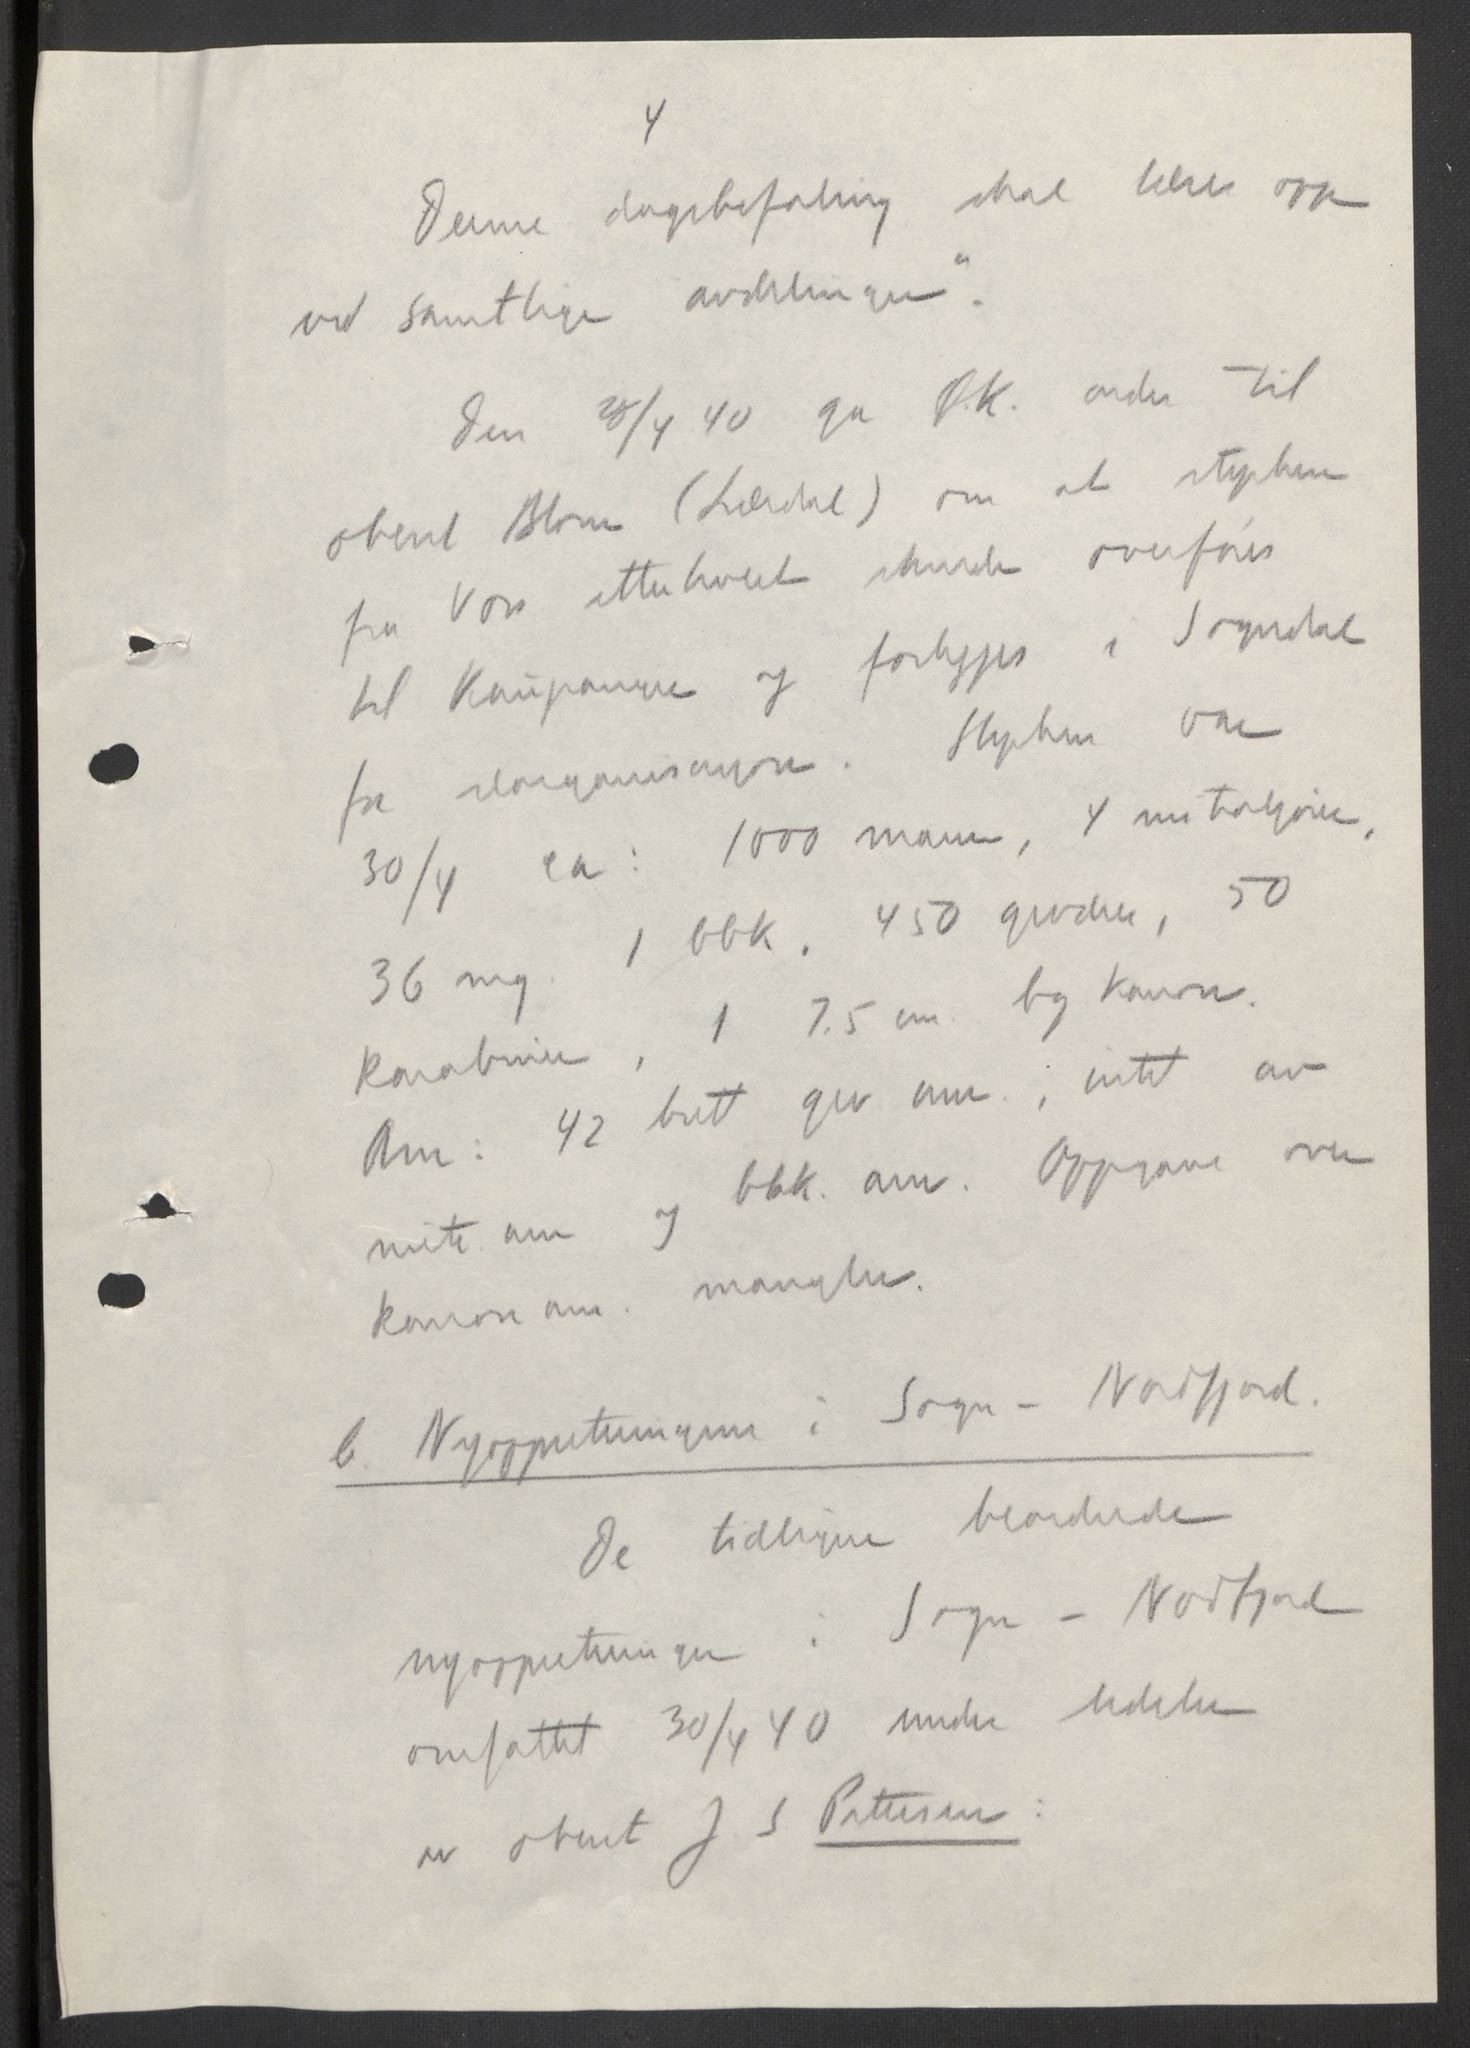 4
Denne dagsbefaling skal leses opp
ved samtlige avdelinger".
Den 28/4 40 ga Ø.K. ordre til
oberst Blom (Lærdal) om at styrken
fra Voss etterhvert skulde overføres
til Kaupanger og forlegges i Sogndal
for reorganisasjon. Styrken var
30/4 ca: 1000 mann, 4 mitraljøser,
36 mg. 1 bbk. 450 geværer, 50
karabiner, 1 7.5 cm. bg kanon.
Am: 42 gev am. ; intet av
mitr. am og bbk. am. Oppgave over
kanon am. mangler.
b. Nyoppsetningene i Sogn - Nordfjord.
De tidligere beordrede
nyoppsetninger i Sogn - Nordfjord
omfattet 30/4 40 under ledelse
av oberst J S Pettersen: